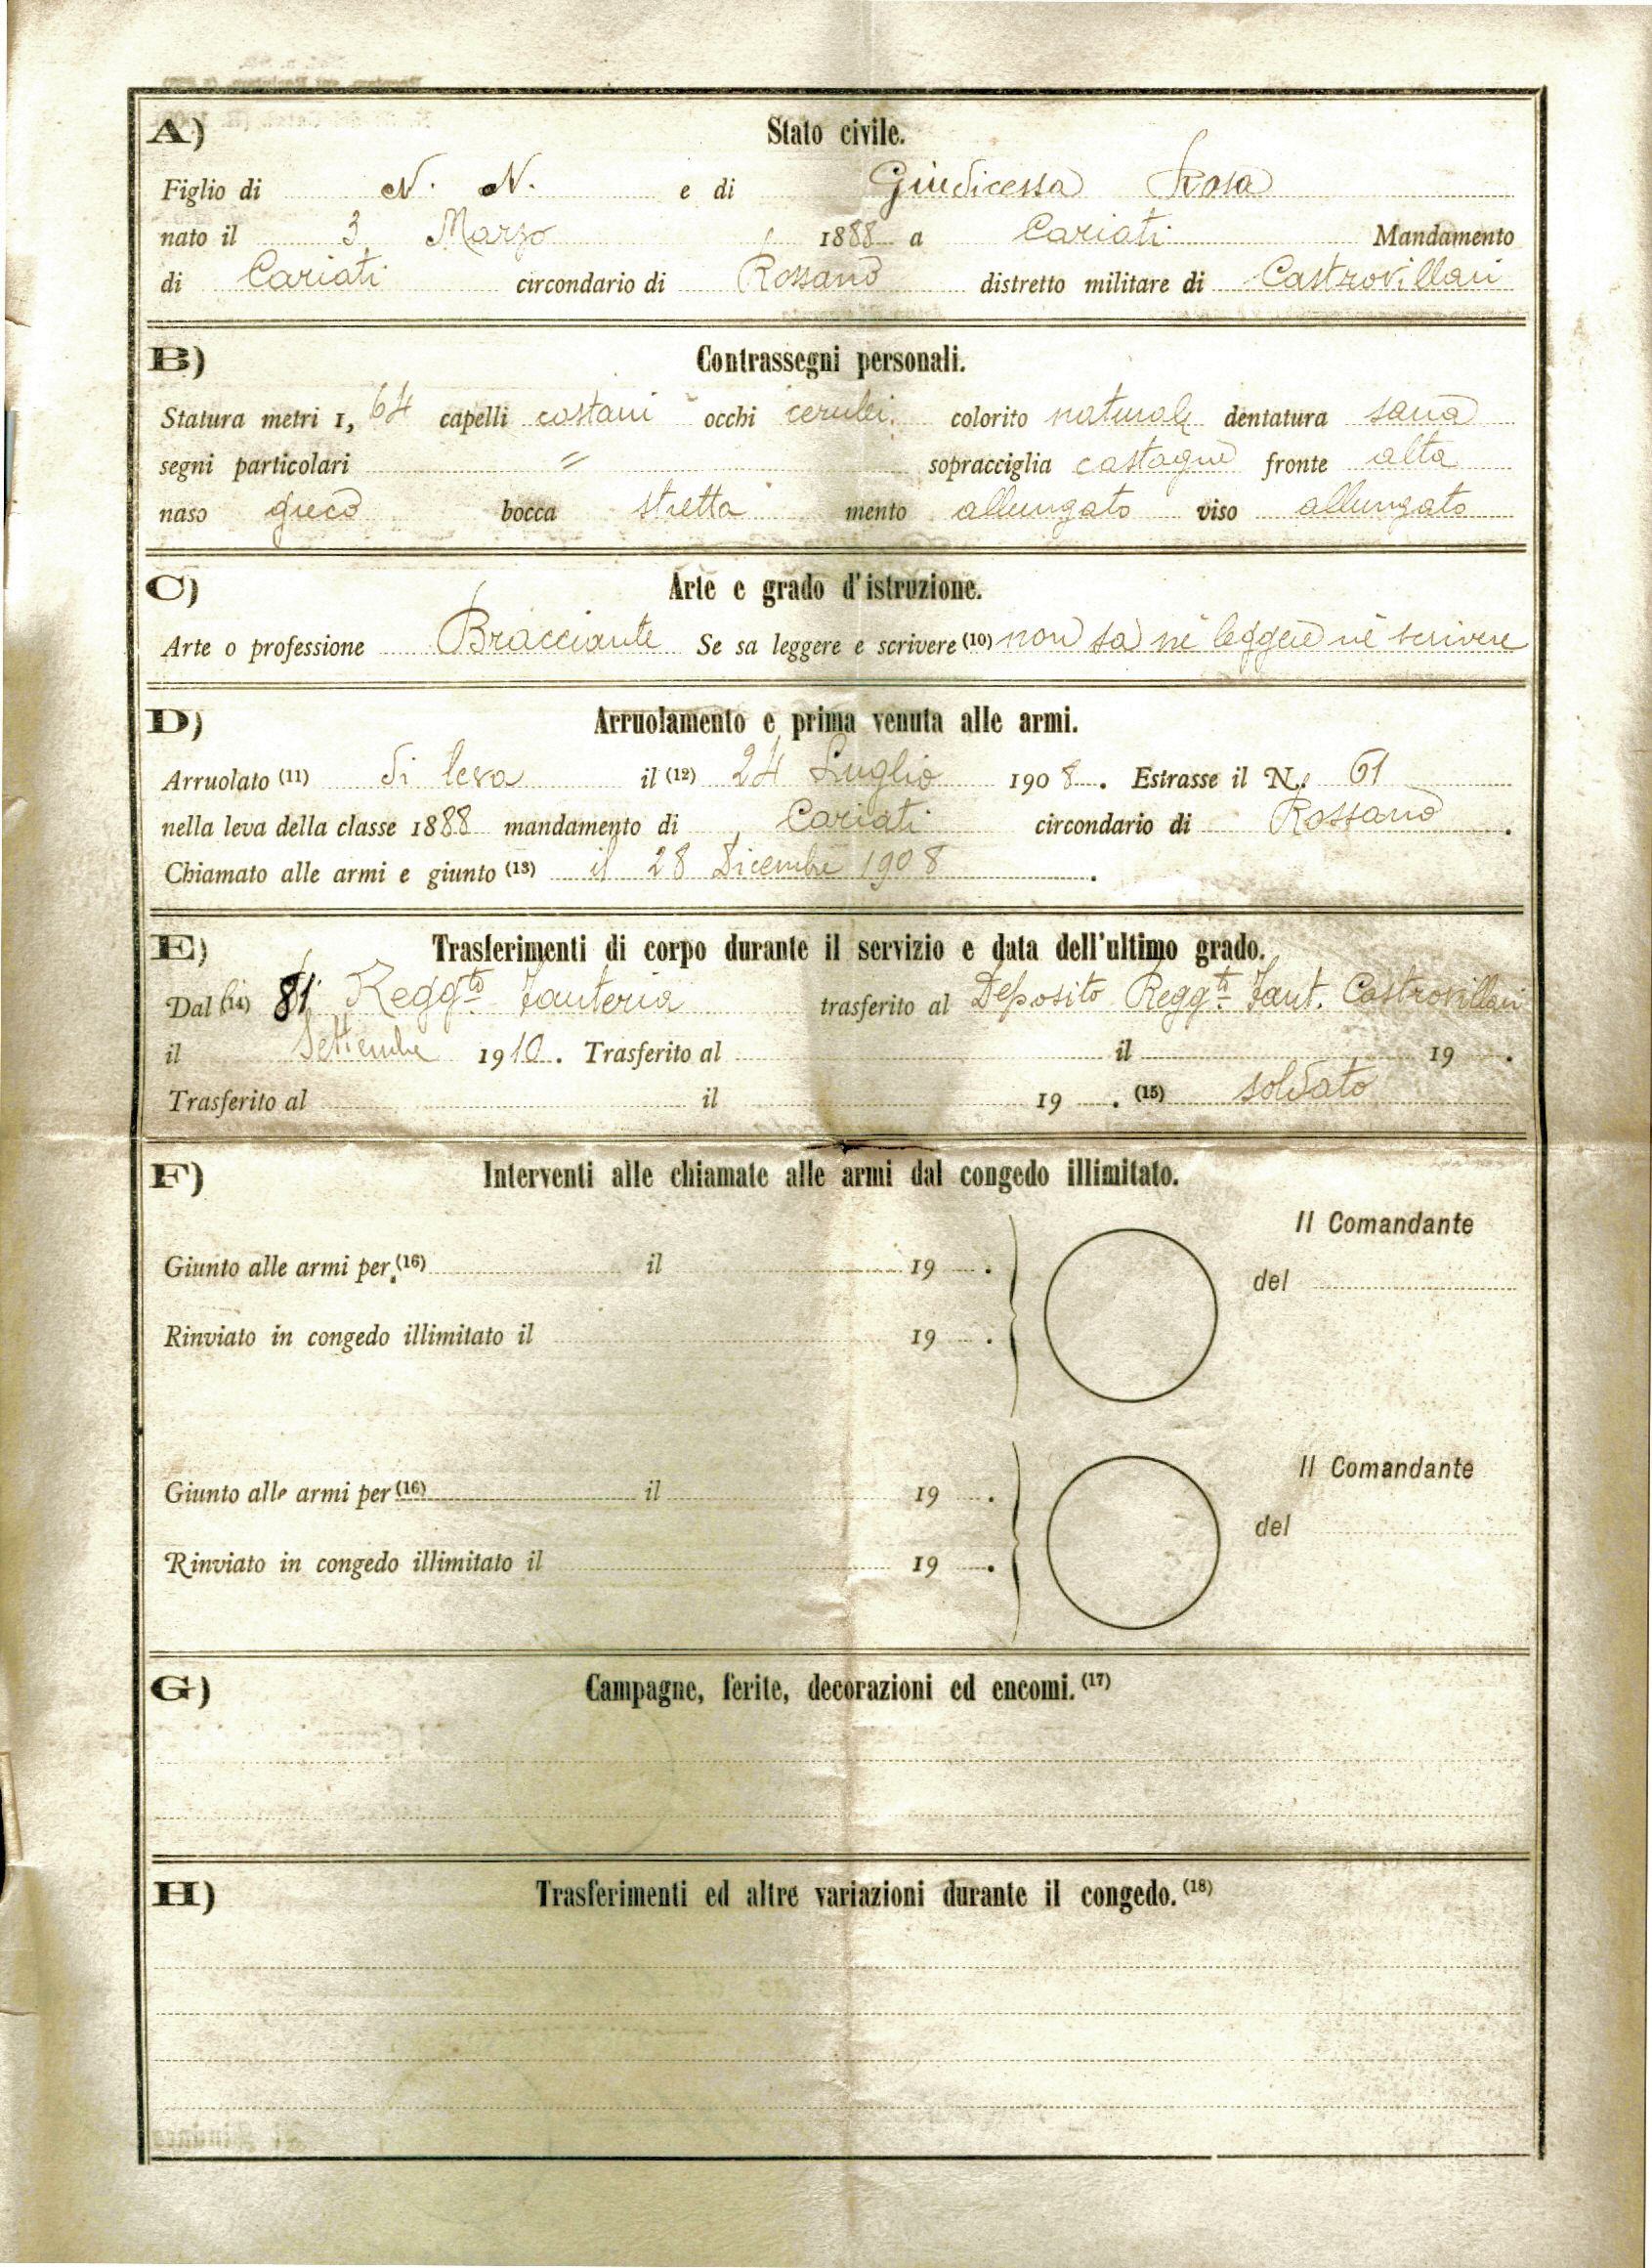 A) Stato civile.
Figlio di N. N. e di Giudicessa Rosa
nato il 3 Marzo 1888 a Cariati Mandamento
di Cariati circondario di Rossano distretto militare di Castrovillari
B) Contrassegni personali.
Statura metri 1, 64 capelli castani occhi cerulei colorito naturale dentatura sana
segni particolari = sopracciglia castagne fronte alta
naso greco bocca stretta mento allungato viso allungato
C) Arte e grado d'istruzione.
Arte o professione Bracciante Se sa leggere e scrivere (10) non sa nè leggere nè scrivere
D) Arruolamento e prima venuta alle armi.
Arruolato (11) di leva il (12) 24 Luglio 1908. Estrasse il N. 61
nella leva della classe 1888 mandamento di Cariati circondario di Rossano.
Chiamato alle armi e giunto (13) il 28 Dicembre 1908.
E) Trasferimenti di corpo durante il servizio e data dell'ultimo grado.
Dal (14) 81 Reggto Fanteria trasferito al Deposito Reggto Fant. Castrovillari
il Settembre 1910. Trasferito al il 19 .
Trasferito al il 19 . (15) soldato
F) Interventi alle chiamate alle armi dal congedo illimitato.
Il Comandante
Giunto alle armi per (16) il 19 .
del
Rinviato in congedo illimitato il 19 .
Il Comandante
Giunto alle armi per (16) il 19 .
del
Rinviato in congedo illimitato il 19 .
G) Campagne, ferite, decorazioni ed encomi. (17)
H) Trasferimenti ed altre variazioni durante il congedo. (18)